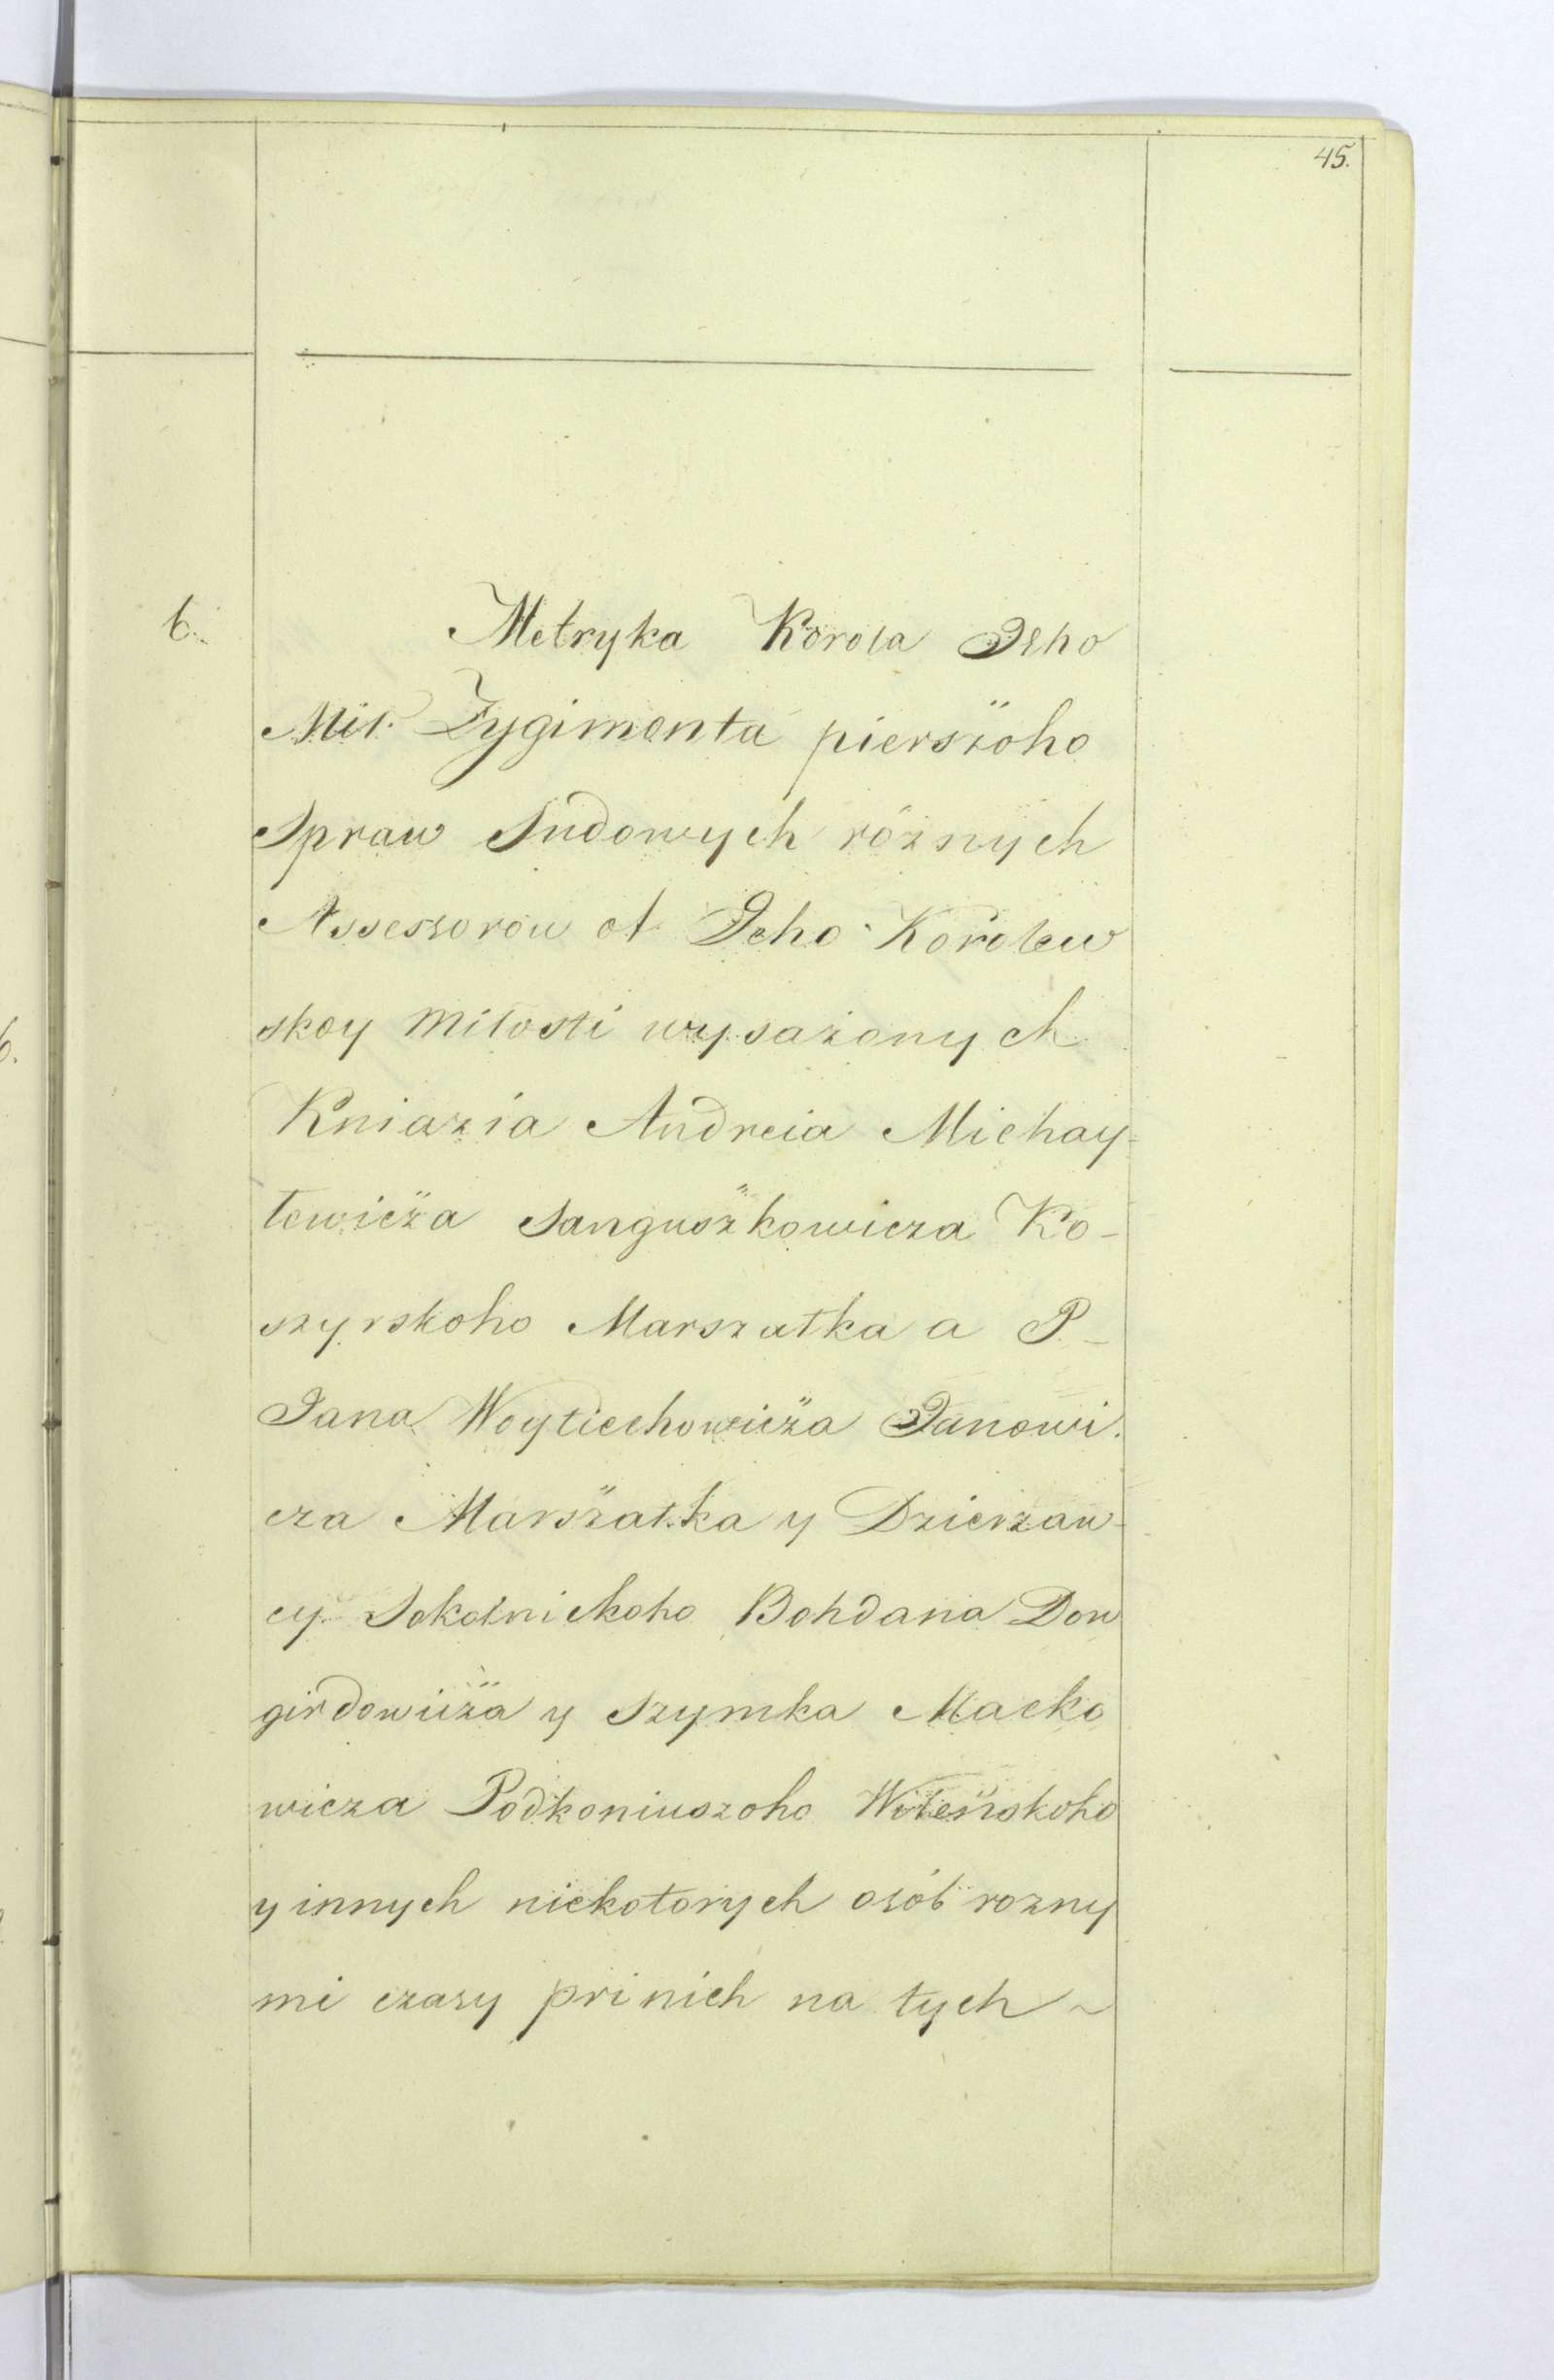 45.
6.
Metryka Korola Jeho
Mił. Zygimonta pierszoho
Spraw Sudowych róznych
Assessorow ot Jeho Korolew
skoy miłosti wysażonych
Kniazia Andreia Michay-
łowicza Sanguszkowicza Ko-
szyrskoho Marszałka a P
Jana Woytiechowicza Janowi.
cza Marszałka y Dzierzaw-
cy Sokolnickoho Bohdana Dow
girdowicza y Szymka Macko
wicza Podkoniuszoho Wileńskoho
y innych niekotorych osób rozny
mi czasy pri nich na tych ~